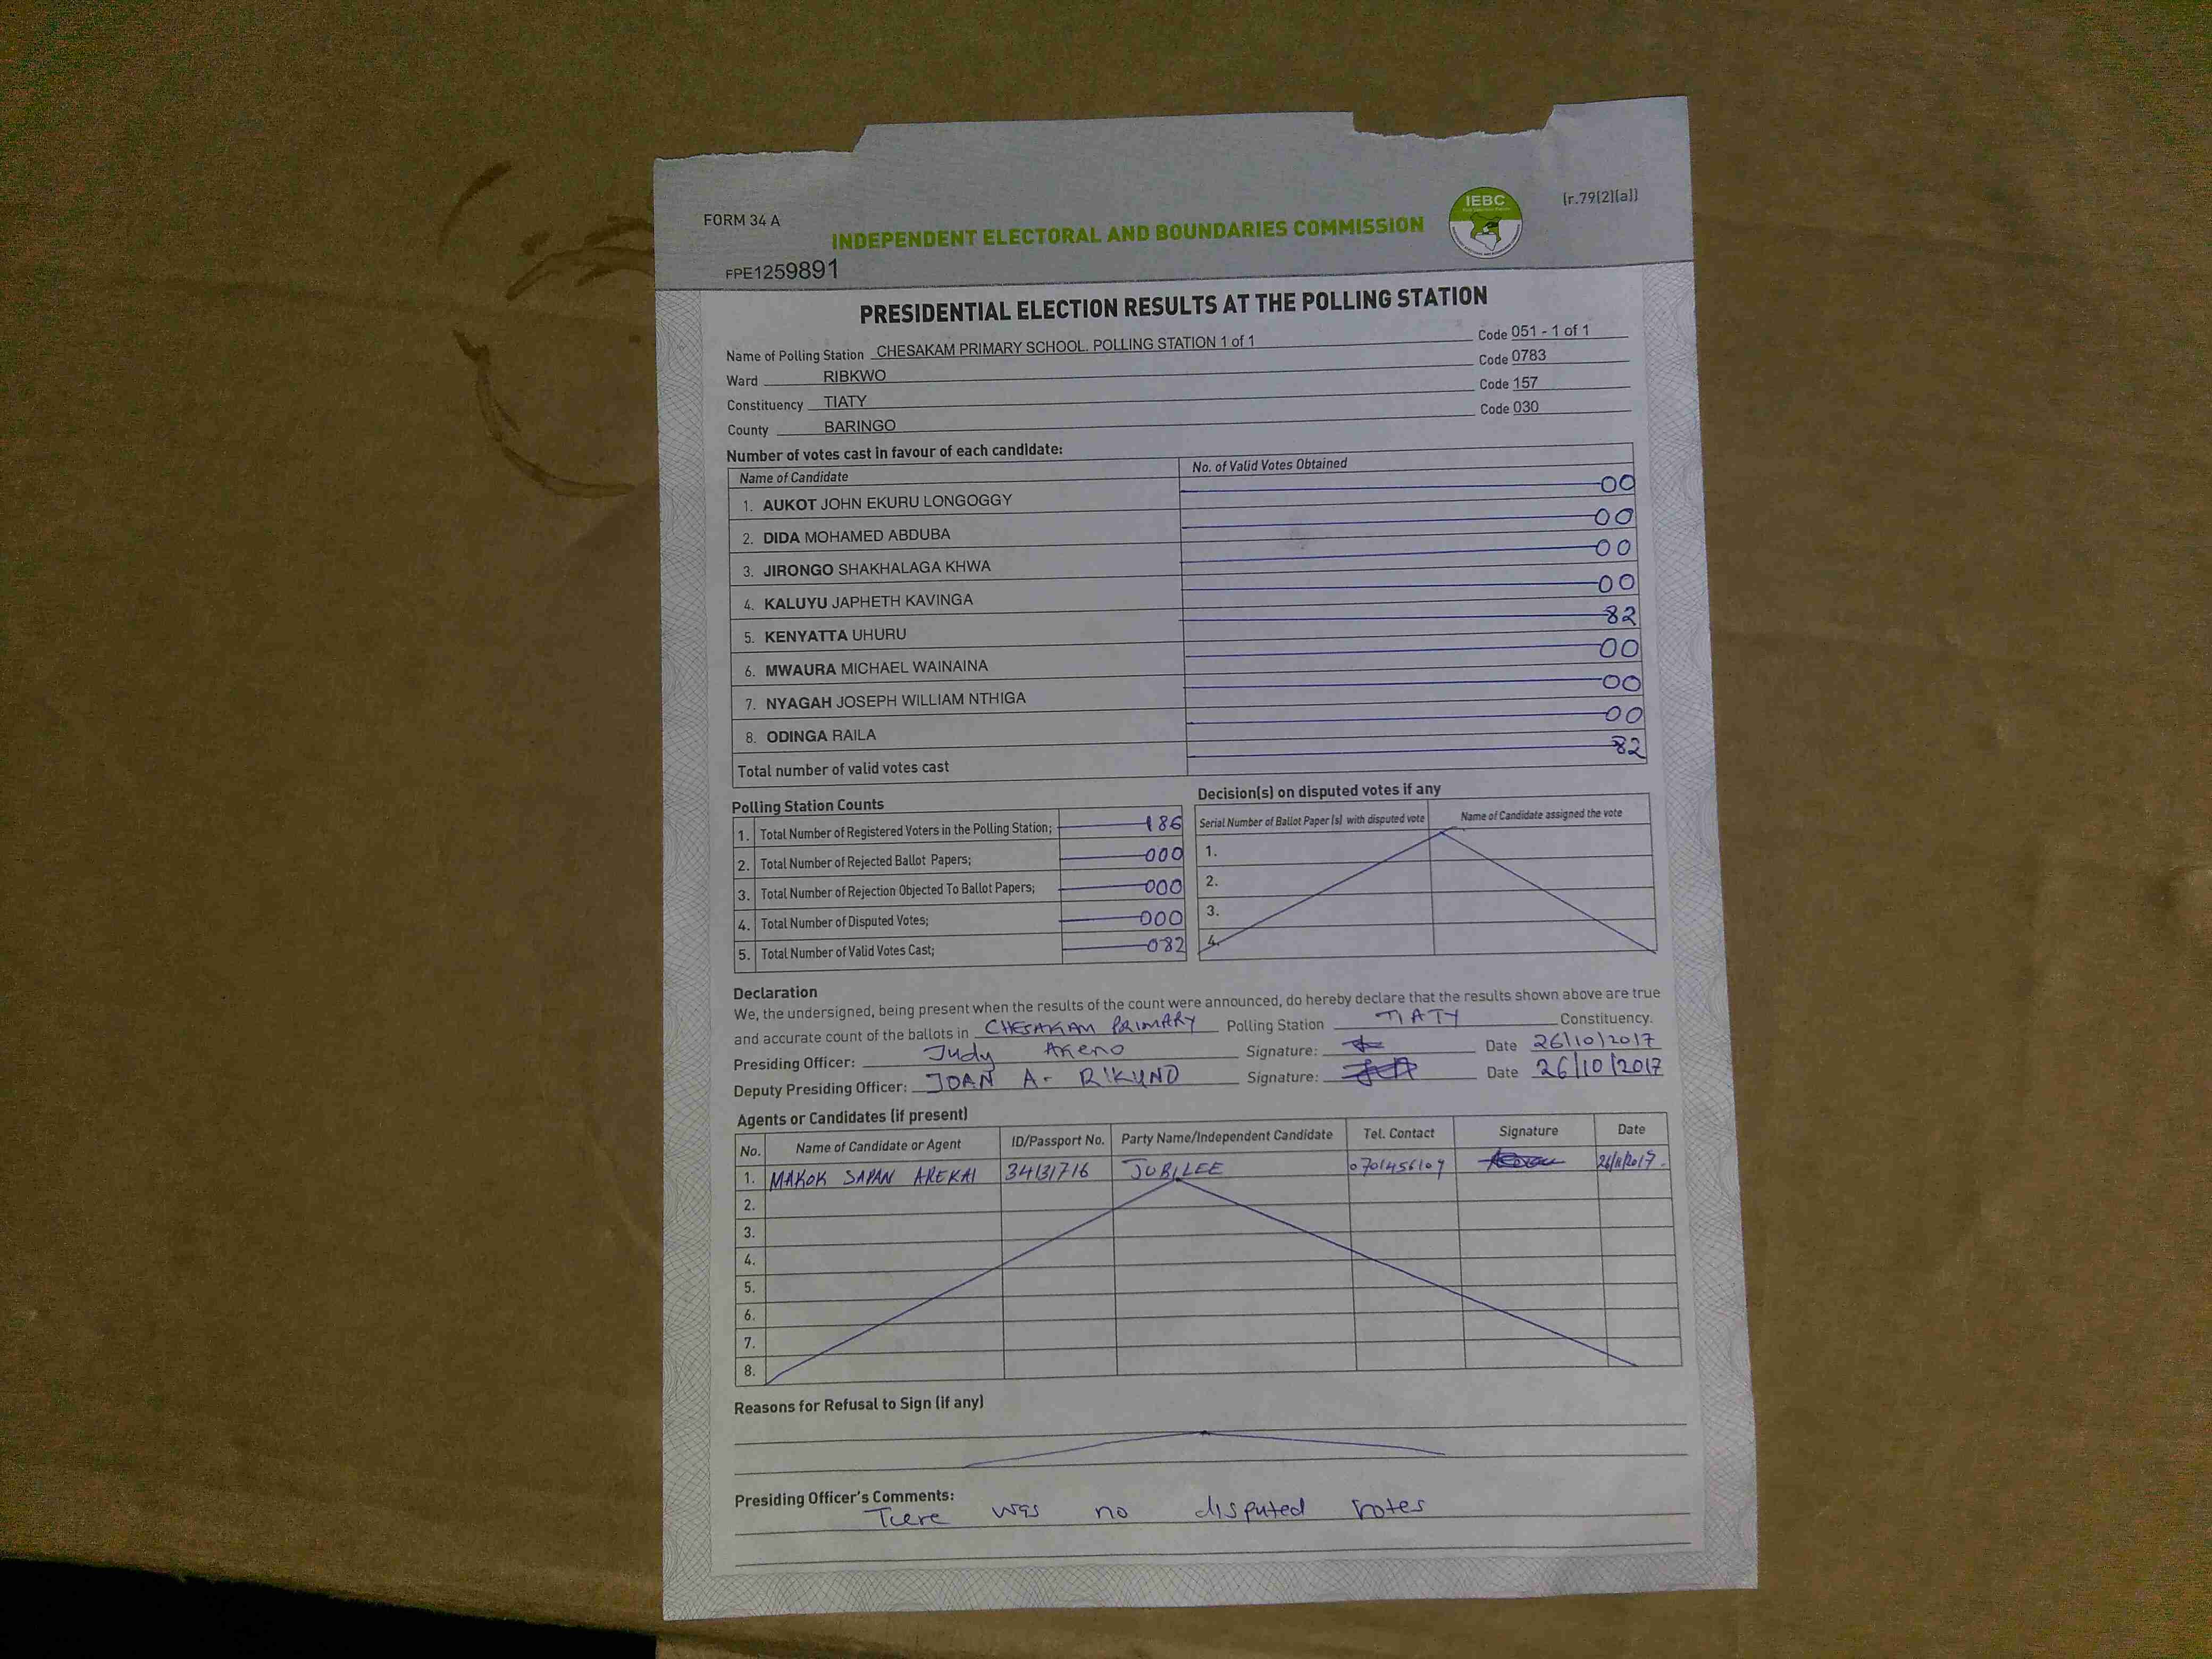 FORM 34 A
INDEPENDENT ELECTORAL AND BOUNDARIES COMMISSION
IEBC
(r.79(2)(a))
FPE1259891
PRESIDENTIAL ELECTION RESULTS AT THE POLLING STATION
Name of Polling Station CHESAKAM PRIMARY SCHOOL. POLLING STATION 1 of 1 Code 051 - 1 of 1
Ward RIBKWO Code 0783
Constituency TIATY Code 157
County BARINGO Code 030
Number of votes cast in favour of each candidate:
Name of Candidate No. of Valid Votes Obtained
1. AUKOT JOHN EKURU LONGOGGY 00
2. DIDA MOHAMED ABDUBA 00
3. JIRONGO SHAKHALAGA KHWA 00
4. KALUYU JAPHETH KAVINGA 00
5. KENYATTA UHURU 82
6. MWAURA MICHAEL WAINAINA 00
7. NYAGAH JOSEPH WILLIAM NTHIGA 00
8. ODINGA RAILA 00
Total number of valid votes cast 82
Polling Station Counts
1. Total Number of Registered Voters in the Polling Station; 186
2. Total Number of Rejected Ballot Papers; 000
3. Total Number of Rejection Objected To Ballot Papers; 000
4. Total Number of Disputed Votes; 000
5. Total Number of Valid Votes Cast; 082
Decision(s) on disputed votes if any
Serial Number of Ballot Paper (s) with disputed vote Name of Candidate assigned the vote
1.
2.
3.
4.
Declaration
We, the undersigned, being present when the results of the count were announced, do hereby declare that the results shown above are true
and accurate count of the ballots in CHESAKAM PRIMARY Polling Station TIATY Constituency.
Presiding Officer: Judy Akeno Signature: Date 26/10/2017
Deputy Presiding Officer: JOAN A- RIKUNO Signature: Date 26/10/2017
Agents or Candidates (if present)
No. Name of Candidate or Agent ID/Passport No. Party Name/Independent Candidate Tel. Contact Signature Date
1. MAKOK SAPAN AREKAI 34131716 JUBILEE 0701456109
2.
3.
4.
5.
6.
7.
8.
Reasons for Refusal to Sign (if any)
Presiding Officer's Comments:
There was no disputed votes